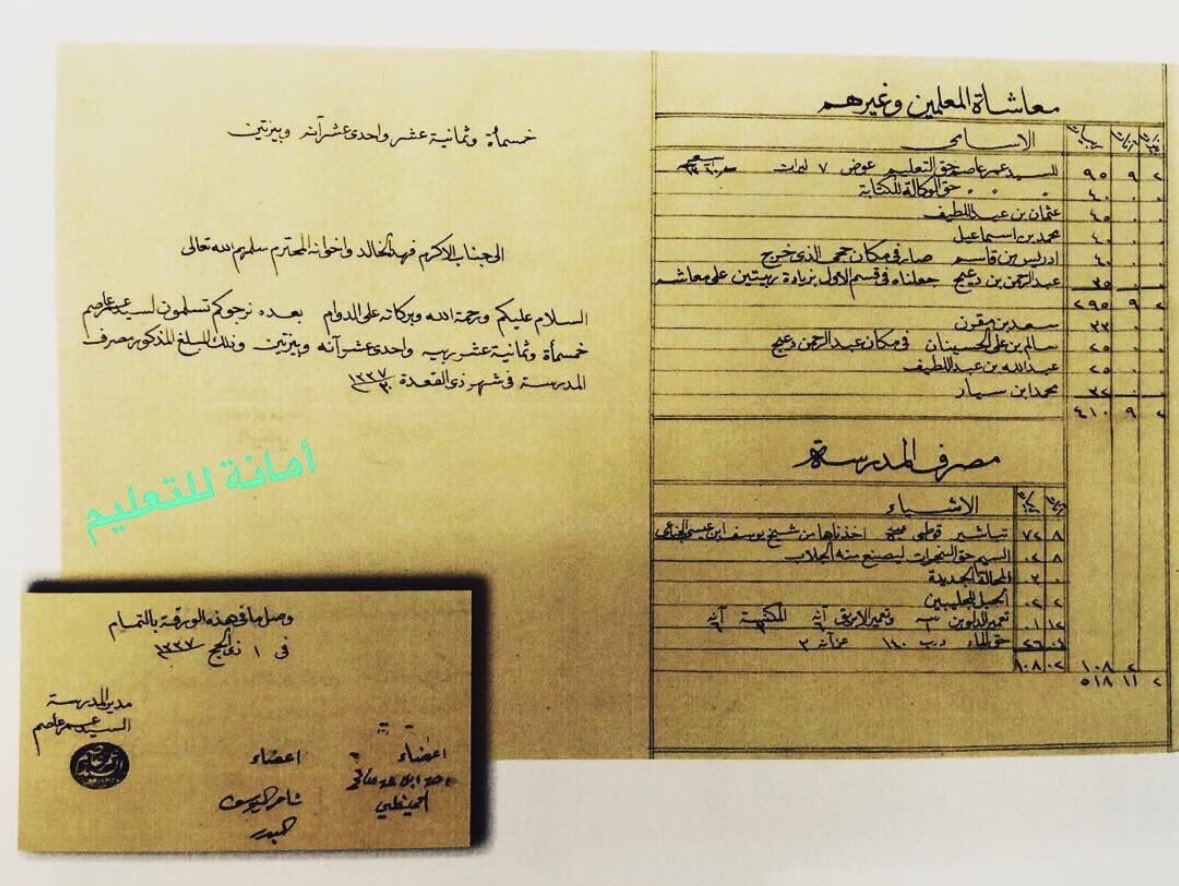 معاشاة المعلمين وغيرهم
الاسامي
للسيد عمر عاصم حق التعليم عوض ٧ ليرات ٩٥ ٩ ٢
حق الوكالة للكتابة ٤٠ . .
عثمان بن عبد اللطيف ٤٥ . .
محمد بن اسماعيل ٤٠ . .
ادريس بن قاسم صار في مكان حجي الذي خرج ٤٠ . .
عبد الرحمن بن دعيج جعلناه في قسم الاول بزيادة ربيتين على معاشه ٣٥ . .
٢٩٥ ٩ ٢
سعد بن مقرن ٣٣ . .
سالم بن علي الحسينان في مكان عبد الرحمن دعيج ٢٥ . .
عبد الله بن عبد اللطيف ٢٥ . .
محمد ابن سيار ٣٢ . .
٤١٠ ٩ ٢
مصرف المدرسة
الاشياء
تباشير قوطي اخذناها من شيخ يوسف ابن عيسى القناعي ٧٢ ٨
السيم حق الشجرات ليصنع منه الجلاب ٠٤ ٨
المحالة الجديدة ٠٣ ٠
الحبل للجليبين ٠٢ ٢
تعمير الدلوين وتعمير الابريق آنه المكنسة آنه ٠١ ١٢
حق الماء درب ١٤٠ عن آنه ٣ ٢٦ ٠٤
١٠٨ ٠٢
١٠٨ ٢
٥١٨ ١١ ٢
خمسمأة وثمانية عشر واحدى عشر آنه وبيزتين
الى جناب الاكرم فهد الخالد واخوانه المحترم سلمهم الله تعالى
السلام عليكم ورحمة الله وبركاته على الدوام بعده نرجوكم تسلمون لسيد عمر عاصم
خمسمأة وثمانية عشر ربيه واحدى عشر آنه وبيزتين وذلك المبلغ المذكور تصرف
المدرسة في شهر ذي القعدة ١٣٣٧
أمانة للتعليم
وصل ما في هذه الورقة بالتمام
في ١ ذي الحج ١٣٣٧
مدير المدرسة
السيد عمر عاصم
اعضاء
اعضاء